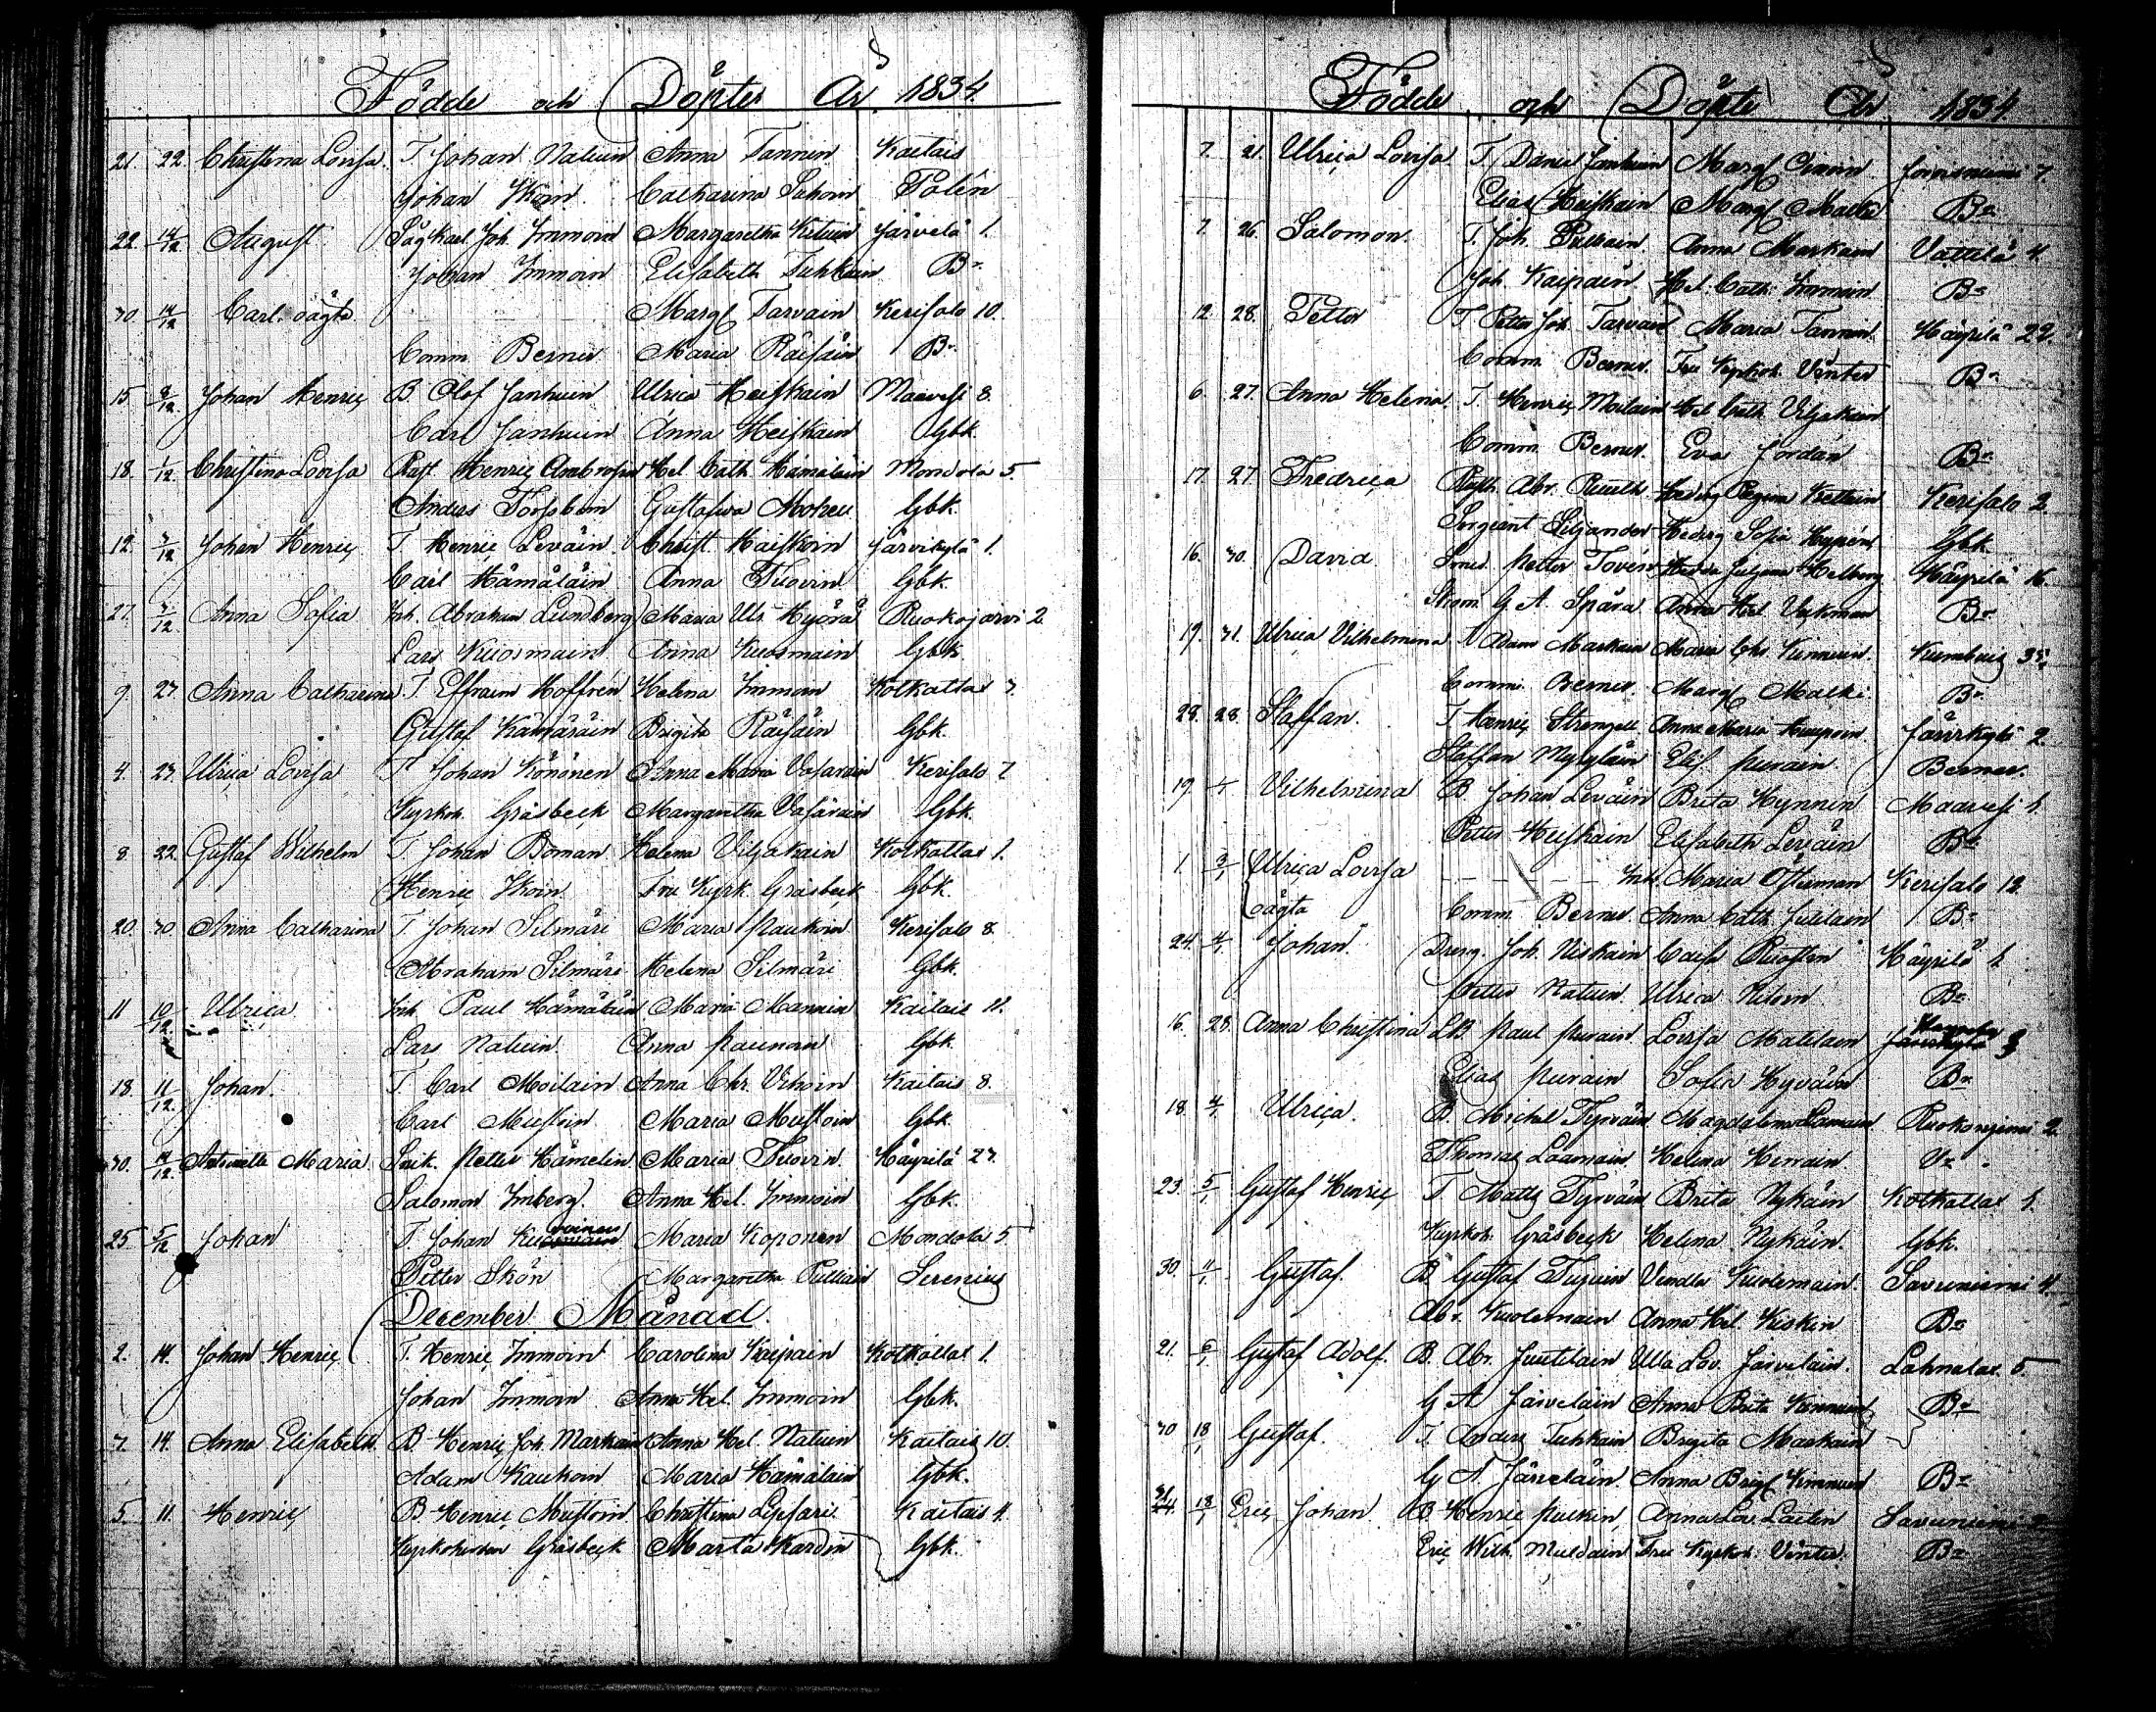 Födde och Döpter År 1834.
21. 22. Christina Lovisa. T. Johan Natuin Anna Tannin Kaitais
Johan Ikoin Catharina Sutioin Polên
22. 14/12 August Joh. Immoin Margaretha Järvelä 1.
Johan Immoin Elisabeth Tuhkain Br.
30. 14/12 Carl. oägta. Margt Tarvain Kerisalo 10.
Comm. Berner Maria Räisäin Br.
15. 9/12. Johan Henric B. Olof Janhuin Ulrica Heiskain Maavesi 8.
Carl Janhuin Anna Heiskain Gbk.
18. 1/12. Christina Lovisa Henric Ambrosius Hel. Cath. Hämäläin Mondola 5.
Anders Gustafwa Gbk.
12. Johan Henric T Henric Leväin. Christ. Haiskoin Järvikylä 1.
Carl Hämäläin Anna Tuovin Gbk.
27. Anna Sofia Inh. Abraham Lundberg Maria Ulr. Ruokojärvi 2
Lars Kuosmain Anna Kuosmain Gbk
9. 23. Anna Catharina. T. Effraim Hoffrén Helena Immoin Kotkatlax 3.
Gustaf Kämäräin Brigita Räisäin Gbk.
4. 23. Ulrica Lovisa T. Johan Könönen Anna Maria Vasarain Kerisalo 7
Kyrkoh. Gråsbeck Margaretha Vasarain Gbk.
8. 22. Gustaf Wilhelm T. Johan Boman Helena Viljakain Kotkatlax 1.
Henric Ikoin. Fru Kyrk. Gråsbeck Gbk.
20. 30. Anna Catharina T Johan Silmäri Maria Paukoin Kerisalo 8.
Abraham Silmäri Helena Silmäri Gbk.
11 10/12. Ulrica Inh. Paul Hämäläin Maria Mannin Kaitais 11.
Lars Natuin. Anna Paunoin Gbk.
18. 11/12. Johan. T. Carl Moilain Anna Chr. Vihoin Kaitais 8.
Carl Mustoin Maria Mustoin Gbk.
30. 14/12. Antonetta Maria. Snik. Petter Hämelin Maria Tuovin. Häyrilä 23.
Salomon Imberg. Anna Hel. Immoin Gbk.
25. 5/12 Johan T. Johan Maria Koponen Mondola 5
Petter Skön Margaretha Pulliain Serenius
December Månad.
2. 14. Johan Henric T. Henric Immoin Carolina Kaipain Kotkatlax 1.
Johan Immoin Anna Hel. Immoin Gbk.
7. 14. Anna Elisabeth. B. Henric Joh. Markain Anna Hel. Natuin Kaitais 10.
Adam Kaukoin Maria Hämäläin Gbk.
5. 11. Henric B. Henric Mustoin Christina Kaitais 4.
Kyrkoherden Gråsbeck Marta Kardin Gbk.
Födde och Döpte År 1834.
7. 21. Ulrica Lovisa T. Daniel Janhuin Margt Joroisniemi 7.
Elias Heiskain Margt Malki Br.
7. 26. Salomon. T. Joh. Pulliain. Anna Markain Vättilä 4.
Joh. Kaipain. Hel. Cath. Immoin. Br.
12. 28. Petter T. Petter Joh. Tarvain Maria Tannin. Häyrilä 22.
Comm. Berner. Fru Kyrkoh. Vinter Br.
6. 27. Anna Helena. T. Henric Moilain Hel. Cath. Viljakain
Comm. Berner. Eva Jordán Br.
17. 27. Fredrica Abr. Hedvig Regina Kerisalo 2
Sergeant Liljander Hedvig Sofia Gbk.
16. 30. David. Petter Tovén Helberg Häyrilä 16.
G A. Spåra. Anna Hel. Br.
19. 31. Ulrica Vilhelmina T Adam Markain Maria Chr. Kinnuin. Kumburg 35.
Commi. Berner. Margt Malki. Br.
28. 28. Staffan. T. Henric Strengell Anna Maria Järvikylä 2.
Staffan Elis. Purain. Berner.
19. 1/1 Vilhelmina B. Johan Leväin Brita Hynnin Maavesi 1.
Petter Heiskain Elisabeth Leväin Br.
1. 3/1 Ulrica Lovisa Inh. Maria Österman Kerisalo 12.
oägta Comm. Berner. Anna Cath. Juutilain Br.
24. 4/1. Johan. Dreng. Joh. Niskain Caisa Häyrilä 1
Petter Natuin. Ulrica Br.
16. 28. Anna Christina Paul Purain Lovisa Matilain
Elias Purain Sofia Hyväin Br.
18. 4/1. Ulrica. B. Michel Tyrväin. Magdalena Laamain Ruokoniemi 2.
Thomas Laamain. Helena
23. 5/1 Gustaf Henric T. Matts Tyrväin Brita Nykäin Kotkatlax 1.
Kyrkoh. Gråsbeck Helena Nykäin. Gbk.
30. 11/1. Gustaf. B. Gustaf Vendla Kuolemain. Savuniemi 4.
Abr. Kuolemain Anna Hel. Br.
21. 6/1 Gustaf Adolf. B. Abr. Juutilain Ulla Lov. Järveläin. Lahnalax. 5.
G A Järveläin Anna Brita Kinnuin Br.
30 18/1 Gustaf. T. Anders Tuhkain Brigita Markain
G A. Järveläin. Anna Brigt Kinnuin Br.
18/1 Eric Johan B. Henric Anna Lov. Savuniemi
Eric Wilh. Muldain Fru Kyrkoh. Vinter. Br.